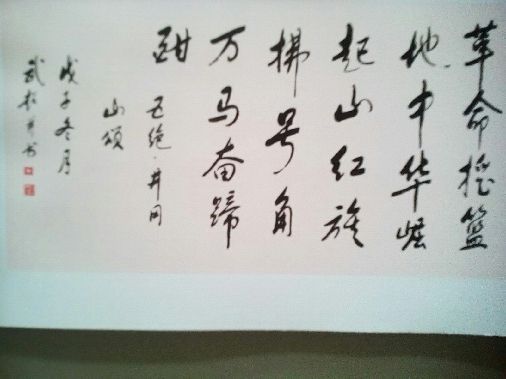 革命摇篮
地中华崛
起山红旗
拂号角
万马奋蹄
酣 五绝·井冈
山颂
戊子冬月
武
书